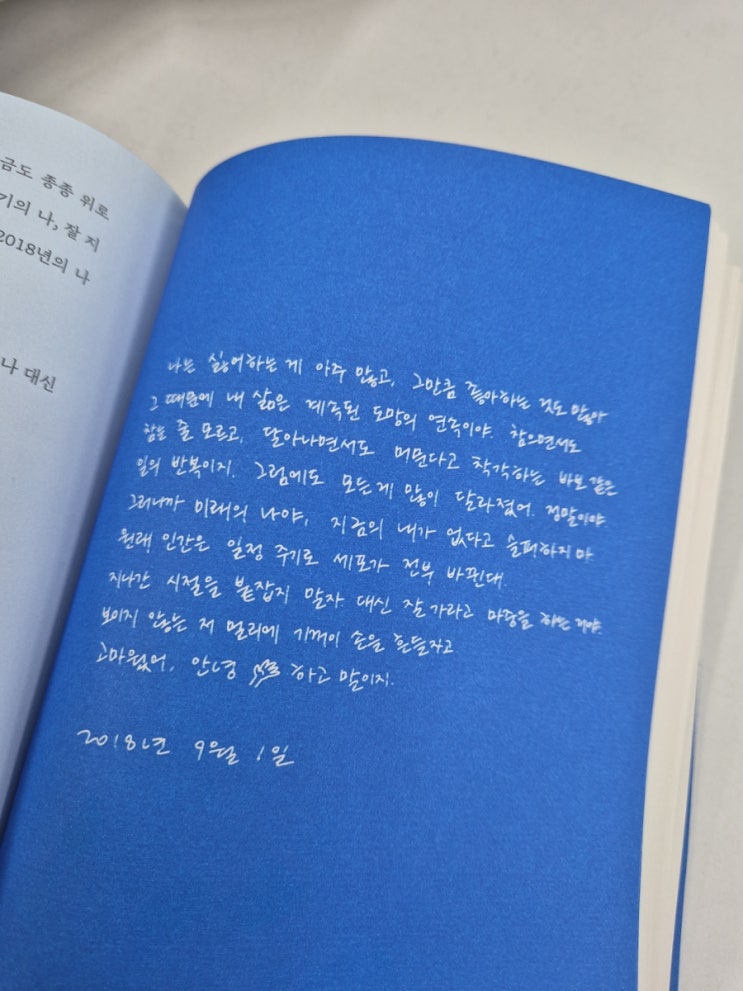 금도 종종 위로
기의 나, 잘 지
2018년의 나
나 대신
나는 싫어하는 게 아주 많고, 그만큼 좋아하는 것도 많아
그 때문에 내 삶은 계속된 도망의 연속이야. 참으면서도
참는 줄 모르고, 달아나면서도 머문다고 착각하는 바보 같은
일의 반복이지. 그럼에도 모든게 많이 달라졌어. 정말이야.
그러니까 미래의 나야, 지금의 내가 없다고 슬퍼하지 마
원래 인간은 일정 주기로 세포가 전부 바뀐대.
지나간 시절을 붙잡지 말자 대신 잘 가라고 마중을 하는 거야.
보이지 않는 저 멀리에 기꺼이 손을 흔들자고
고마웠어, 안녕 하고 말이지.
2018년 9월 1일